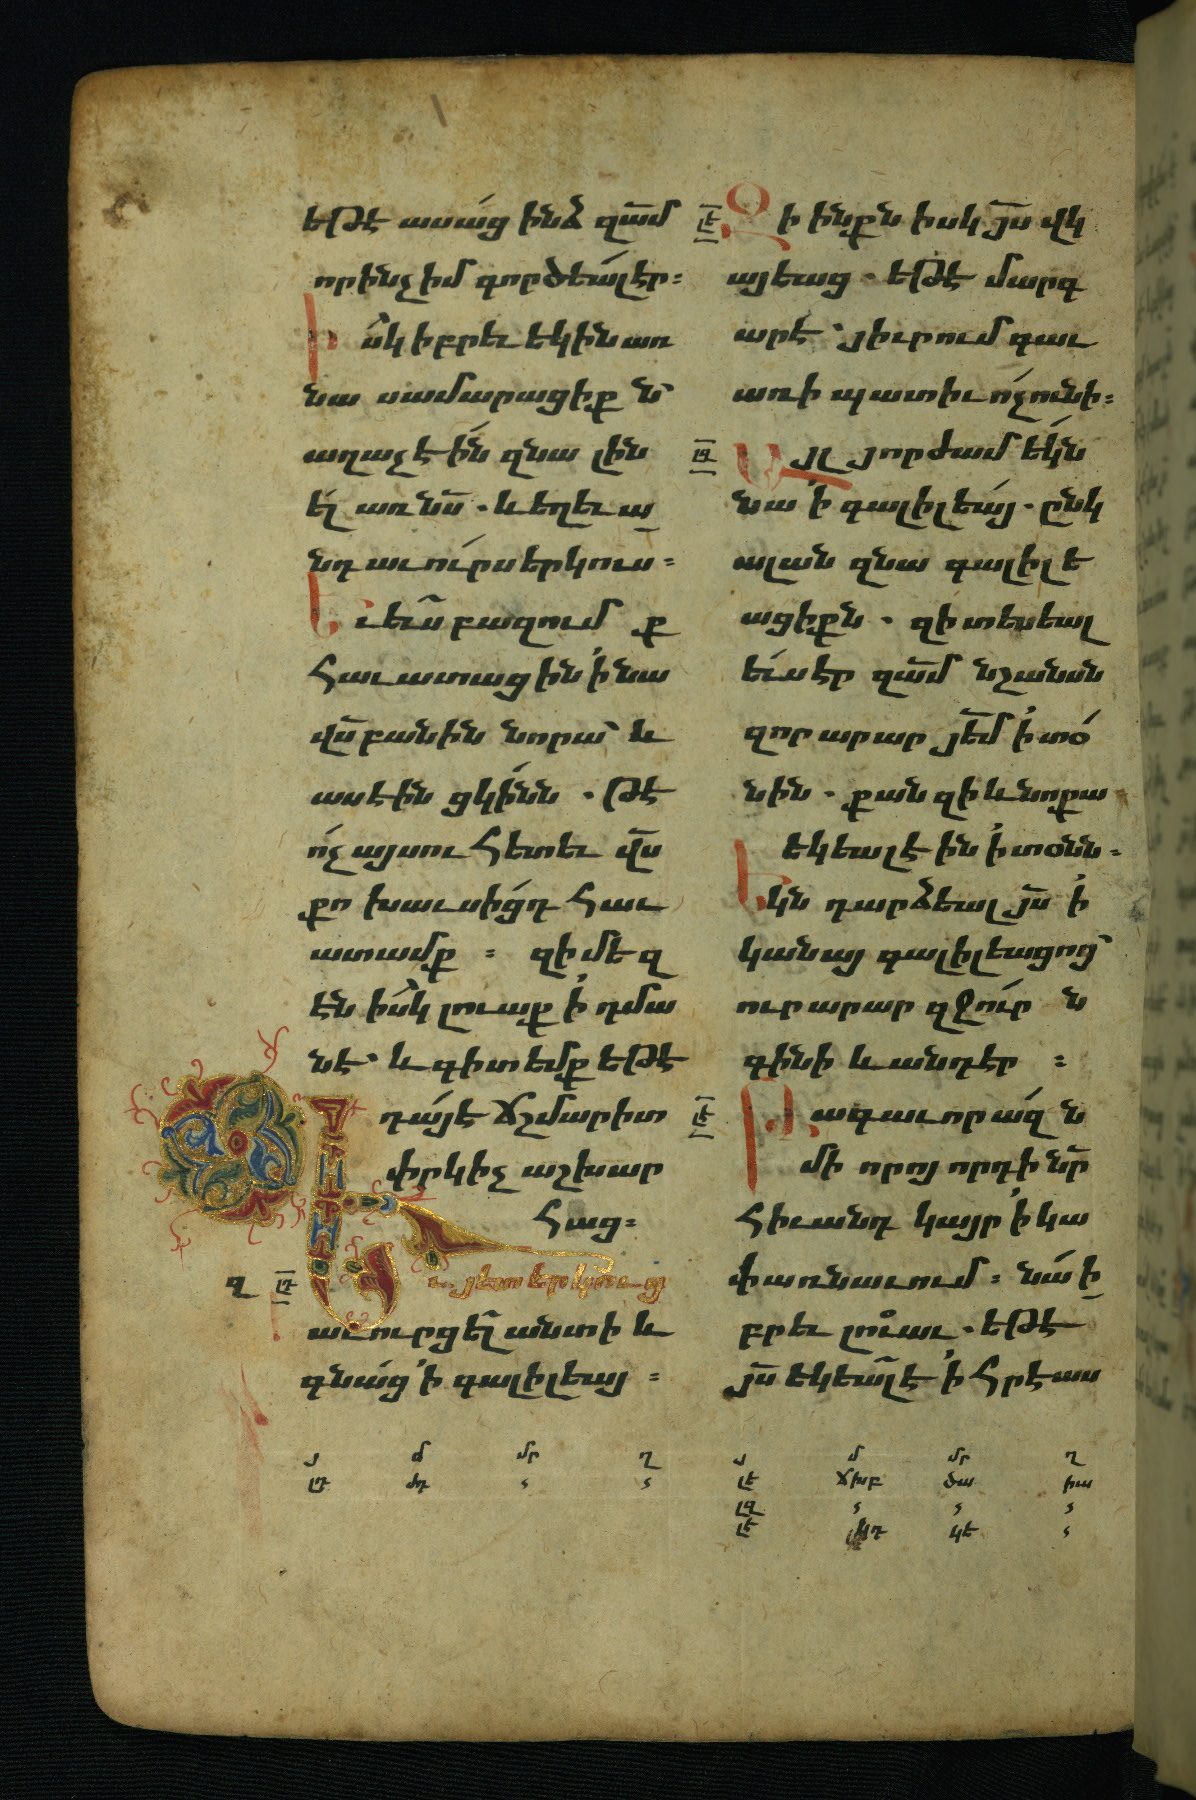 եթէ ասաց ինձ զամ
որինչ իմ գործեալէր։
Իսկ իբրեւ եկին առ
նա սամարացիքն՝
աղաչէին զնա լին
ել առ նս. և եղեւ ա
նդ աւուրս երկուս։
Եւ եւս բազում ք
հաւատացին ՛ի նա
վս բանին նորա՝ և
ասէին ցկինն. թէ
ոչ այսու հետեւ վս
քո խաւսիցդ հաւ
ատամք։ զի մեզ
էն իսկ լուաք ՛ի դմա
նէ՝ և գիտեմք եթէ
դայէ ճշմարիտ
փրկիչ աշխար
հաց։
զ լդ Եւ յետ երկուց
աւուրց ել անտի և
գնաց ՛ի գալիլեայ։
յ մ մր ղ
լդ ժդ
լե Զի ինքն իսկ յս վկ
այեաց. եթէ մարգ
արէ՝ յիւրում գաւ
առի պատիւ ոչունի։
լզ Այլ յորժամ եկն
նա ՛ի գալիլեայ. ընկ
ալան զնա գալիլե
ացիքն. զի տեսեալ
եւս էր զամ նշանսն
զոր արար յեմ ՛ի տօ
նին. քանզի և նոքա
եկեալէին ՛ի տօնն։
Եկն դարձեալ յս ՛ի
կանայ գալիլեացոց՝
ուր արար զջուրն
գինի և անդէր։
լէ Թագաւորազն
մի որոյ որդի նր
հիւանդ կայր ՛ի կա
փառնաւում։ նա ի
բրեւ լուաւ. եթէ
յս եկեալէ ՛ի հրէաս
յ մ մր ղ
լե ճխբ ծա իա
լզ
լէ կդ կե